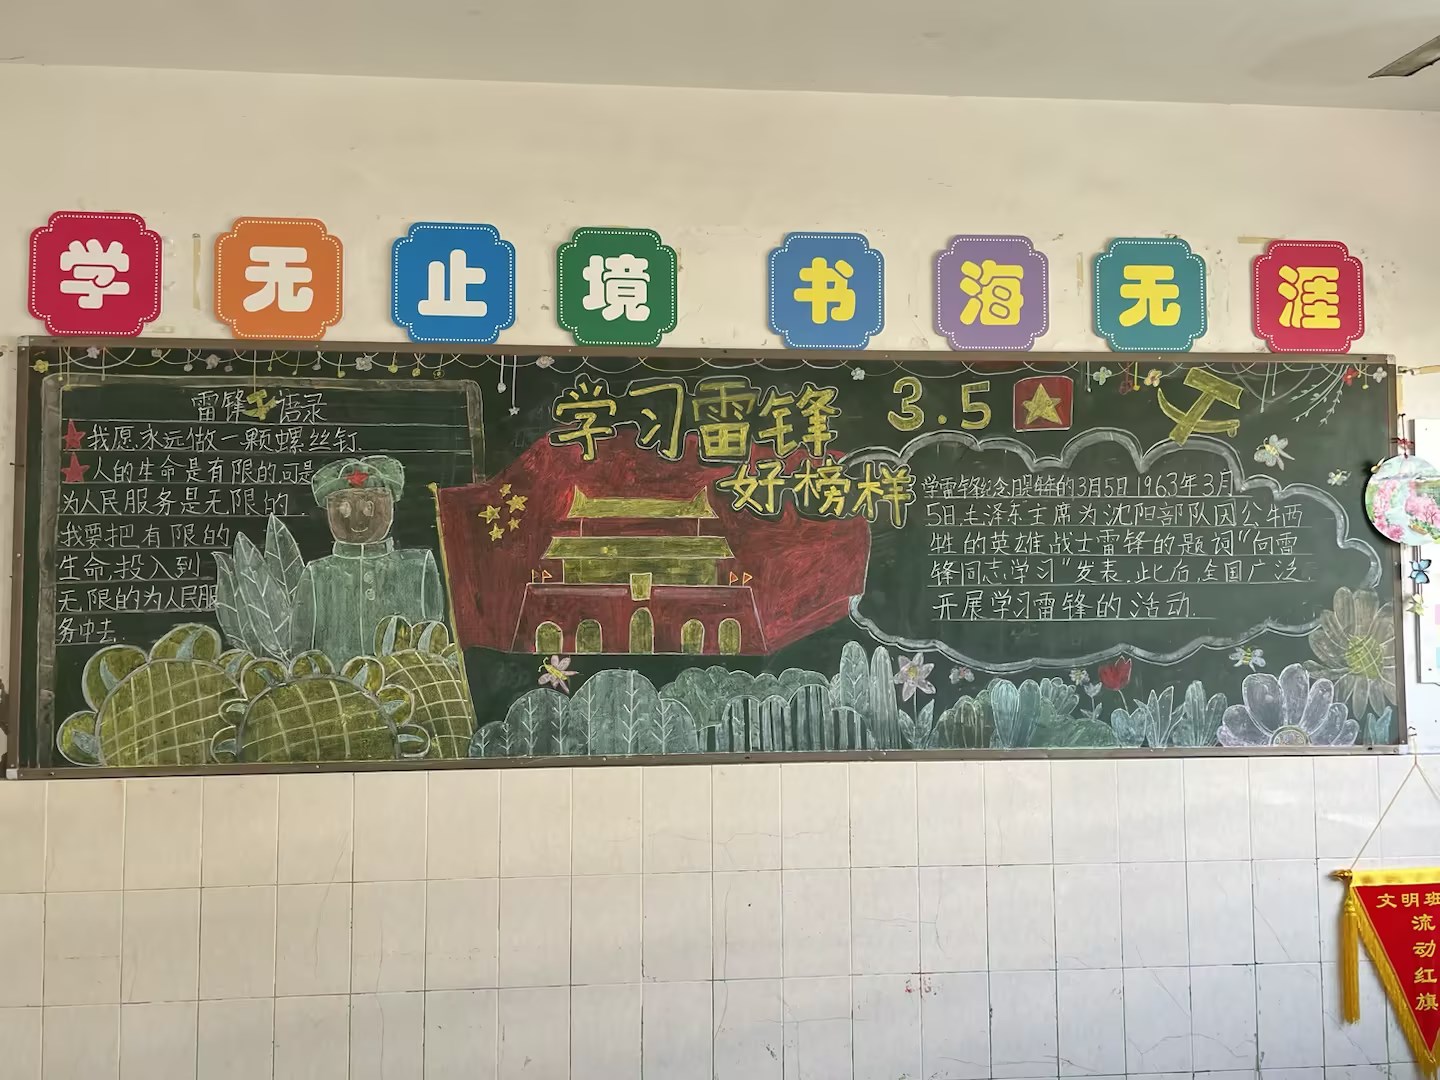 学无止境 书海无涯
雷锋语录
我愿永远做一颗螺丝钉.
人的生命是有限的,可是
为人民服务是无限的.
我要把有限的
生命,投入到
无限的为人民服
务中去.
学习雷锋
好榜样
3.5
学雷锋纪念日是每年的3月5日 1963年3月
5日,毛泽东主席为沈阳部队因公牺
牲的英雄战士雷锋的题词"向雷
锋同志学习"发表.此后,全国广泛
开展学习雷锋的活动.
文明班
流
动
红
旗